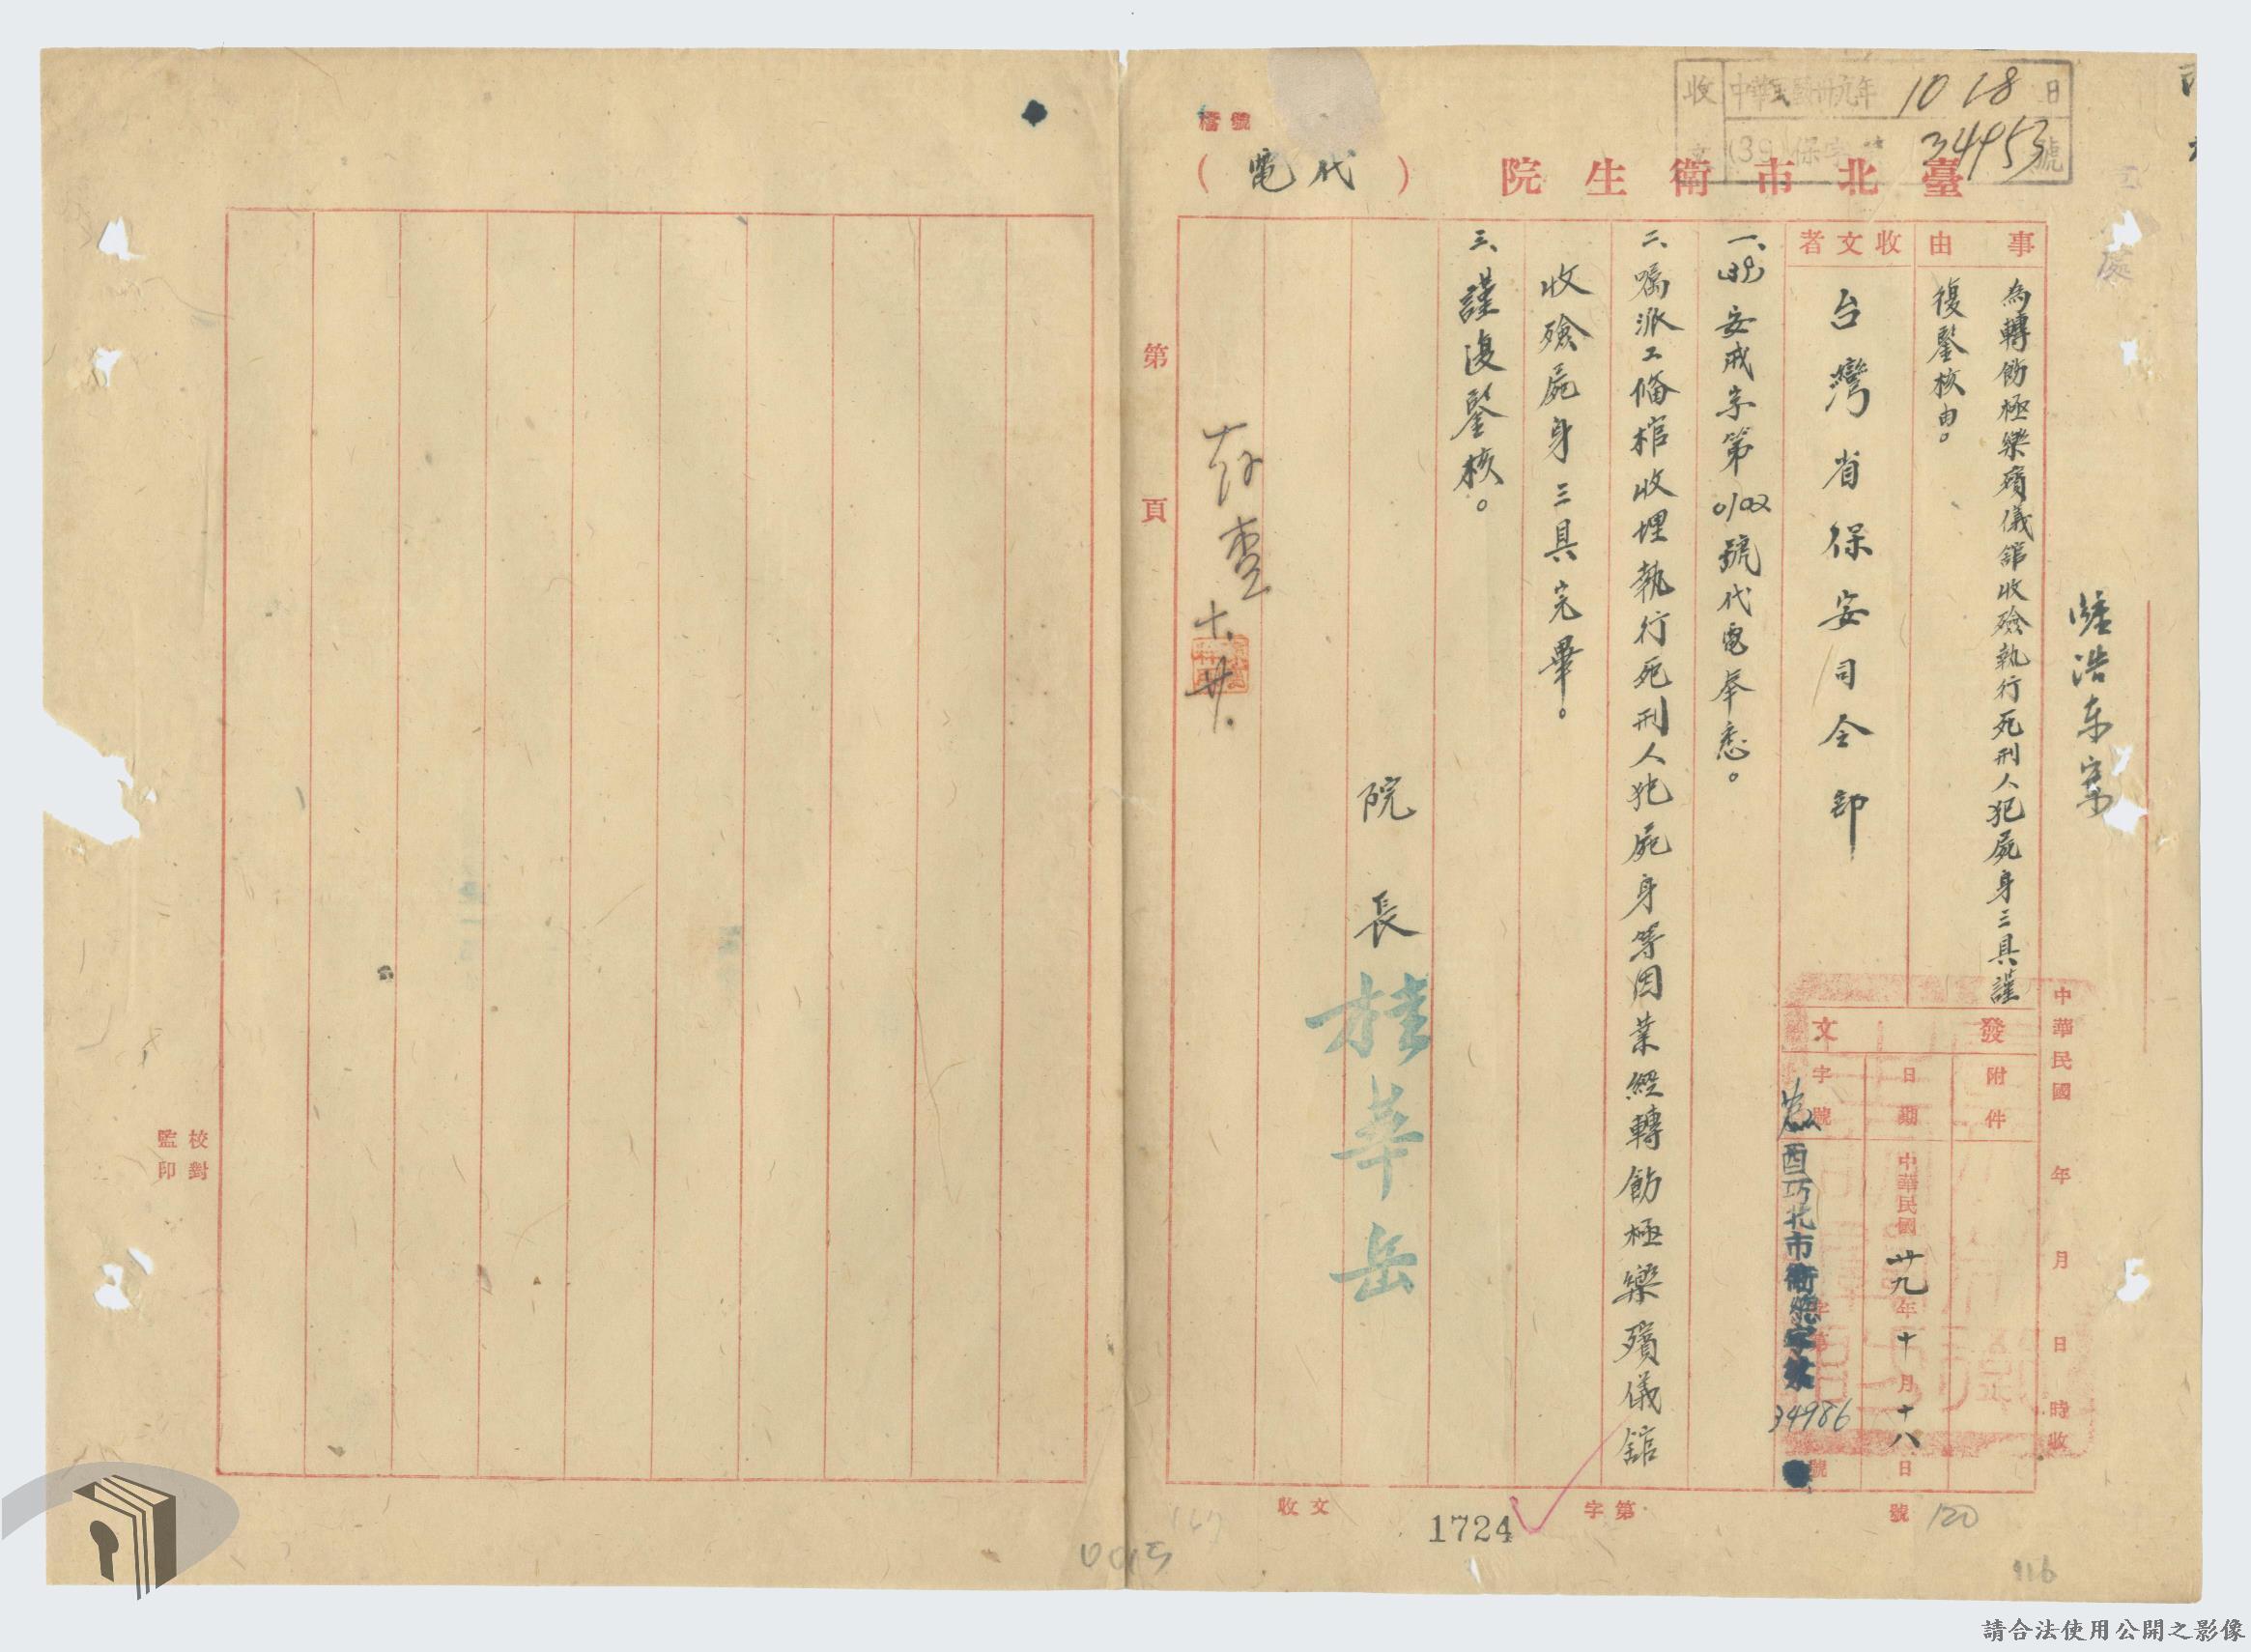 收
中華民國卅九年 10 18 日
(39) 保字 34953 號
檔號
臺北市衛生院
(代電)
鍾浩東案
中華民國 年 月 日 時收
事由
為轉飭極樂殯儀館收殮執行死刑人犯屍身三具謹
復鑒核由。
收文者
台灣省保安司令部
發文
附件
日期
中華民國卅九年十月十八日
字號
酉巧北市衛總字第34986號
一、(39)安戒字第0102號代電奉悉。
二、囑派工備棺收埋執行死刑人犯屍身等因業經轉飭極樂殯儀館
收殮屍身三具完畢。
三、謹復鑒核。
院長桂華岳
存查
十、廿、
第 頁
收文
字第
號
1724
120
116
校對
監印
請合法使用公開之影像